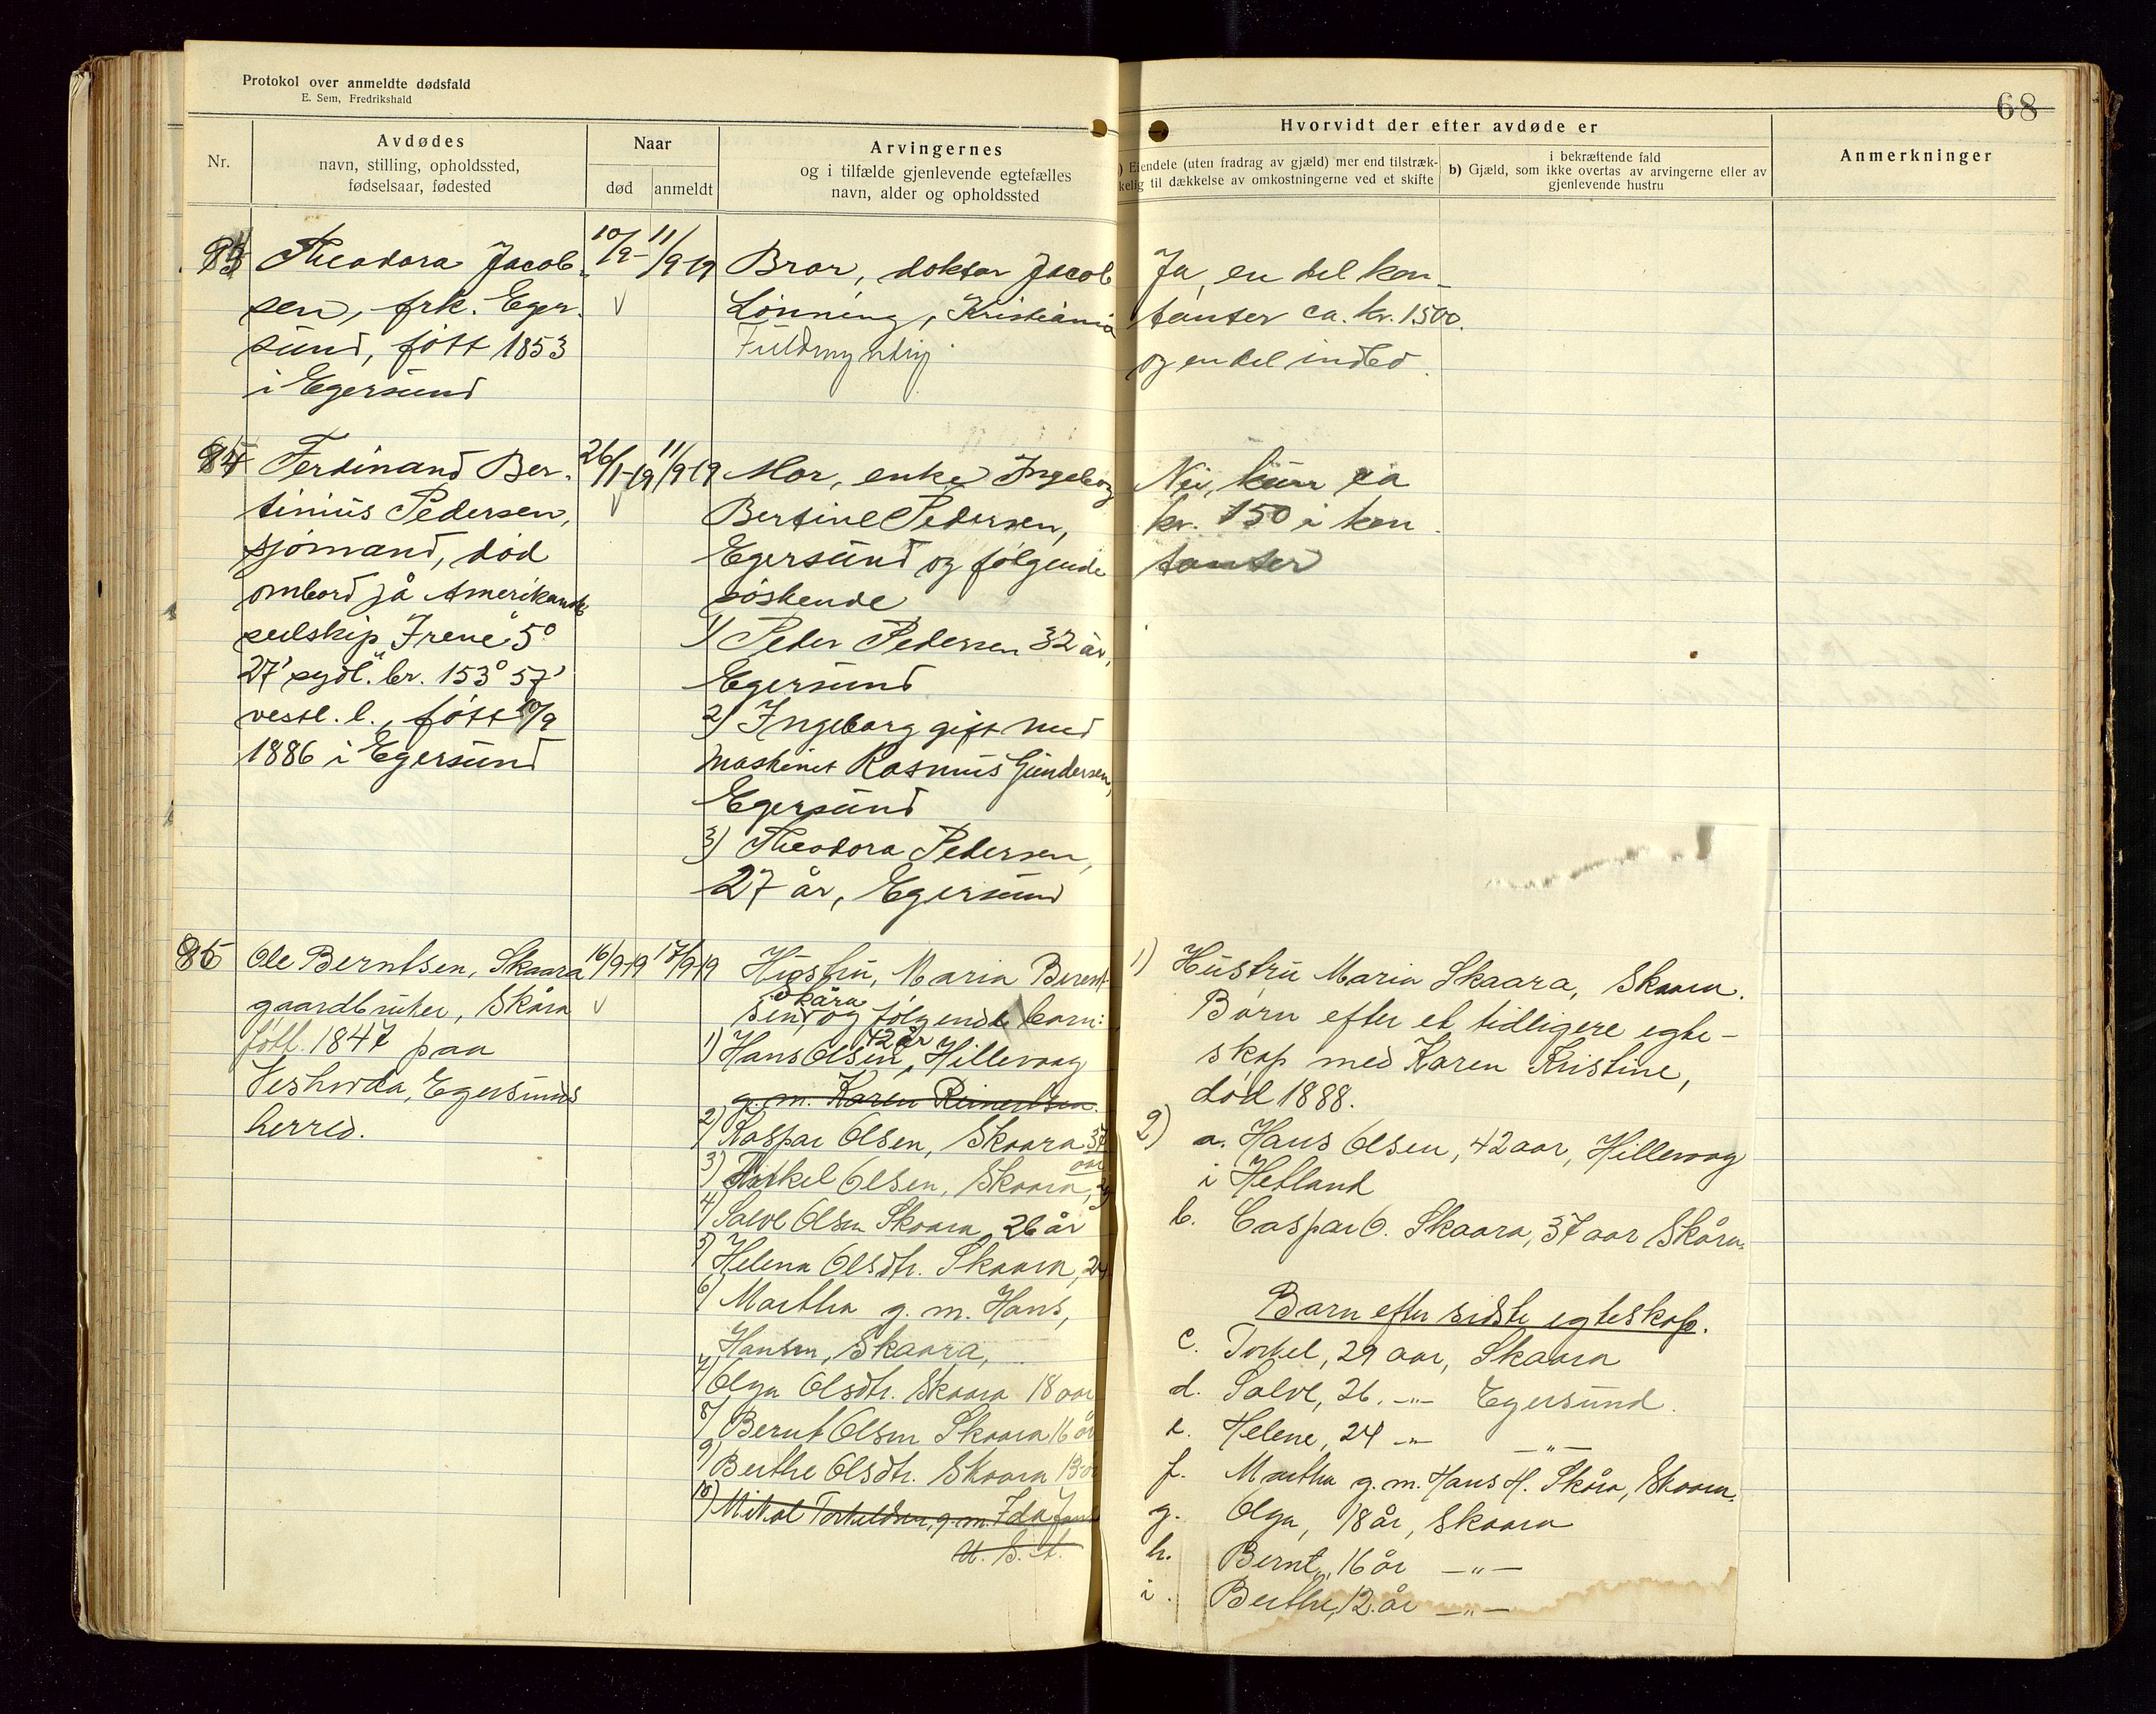 Protokol over anmeldte dødsfald
E. Sem, Fredrikshald
68
Nr.
Avdødes
navn, stilling, opholdssted,
fødselsaar, fødested
Naar
død
anmeldt
Arvingernes
og i tilfælde gjenlevende egtefælles
navn, alder og opholdssted
Hvorvidt der efter avdøde er
) Eiendele (uten fradrag av gjæld) mer end tilstræk-
kelig til dækkelse av omkostningerne ved et skifte
b) Gjæld, som i bekræftende fald ikke overtas av arvingerne eller av
gjenlevende hustru
Anmerkninger
Theodora Jacob-
sen, frk. Eger-
sund, født 1853
i Egersund
10/9-
11/9 19
Bror, doktor Jacob
Lönning, Kristiania
Fuldmyndig
Ja, en del kon-
tanter ca. kr. 1500.
og en del indbo.
84
Ferdinand Ber-
tinius Pedersen,
sjömand, död
ombord på Amerikansk
seilskip "Irene" 5°
27' sydl. br. 153° 57'
vestl. l., født
1886 i Egersund
26/1-19
11/9-19
Mor, enke Ingeborg
Bertine Pedersen,
Egersund og følgende
søskende
1) Peder Pedersen 32 år,
Egersund
2) Ingeborg gift med
Maskinist Rasmus Gundersen,
Egersund
3) Theodora Pedersen,
27 år, Egersund
Nei, kun ca
kr. 150 i kon
tanter
85
Ole Berntsen, Skaara
gaardbruker, Skåra
født 1847 paa
Egersunds
herred.
16/9-19
17/9 19
Hustru, Maria Berent-
Skåra
sen, og følgende barn:
42 år
1) Hans Olsen, Hillevaag
g. m. Karen Reinertsen.
2) Kaspar Olsen, Skaara 37
aar
3) Torkel Olsen, Skaara, 29
4) Salve Olsen Skaara 26 år
5) Helena Olsdtr. Skaara, 24
6) Martha g. m. Hans,
Hansen, Skaara,
7) Olga Olsdtr. Skaara 18 aar
8) Bernt Olsen Skaara 16 år
9) Berthe Olsdtr. Skaara
10) Mikal Torkildsen, g. m. Ida
U. S. A.
1) Hustru Maria Skaara, Skaara.
Børn efter et tidligere egte-
skap med Karen Kristine,
død 1888.
2) a. Hans Olsen, 42 aar, Hillevaag
i Hetland
b. Caspar O. Skaara, 37 aar Skåra.
Barn efter sidste egteskap.
c. Torkel, 29 aar, Skaara
d. Salve, 26. -"- Egersund.
e. Helene, 24 -"- -"-
f. Martha g. m. Hans H. Skåra, Skaara.
g. Olga, 18 år, Skaara
h. Bernt, 16 år -"-
i. Berthe, 12 år -"-